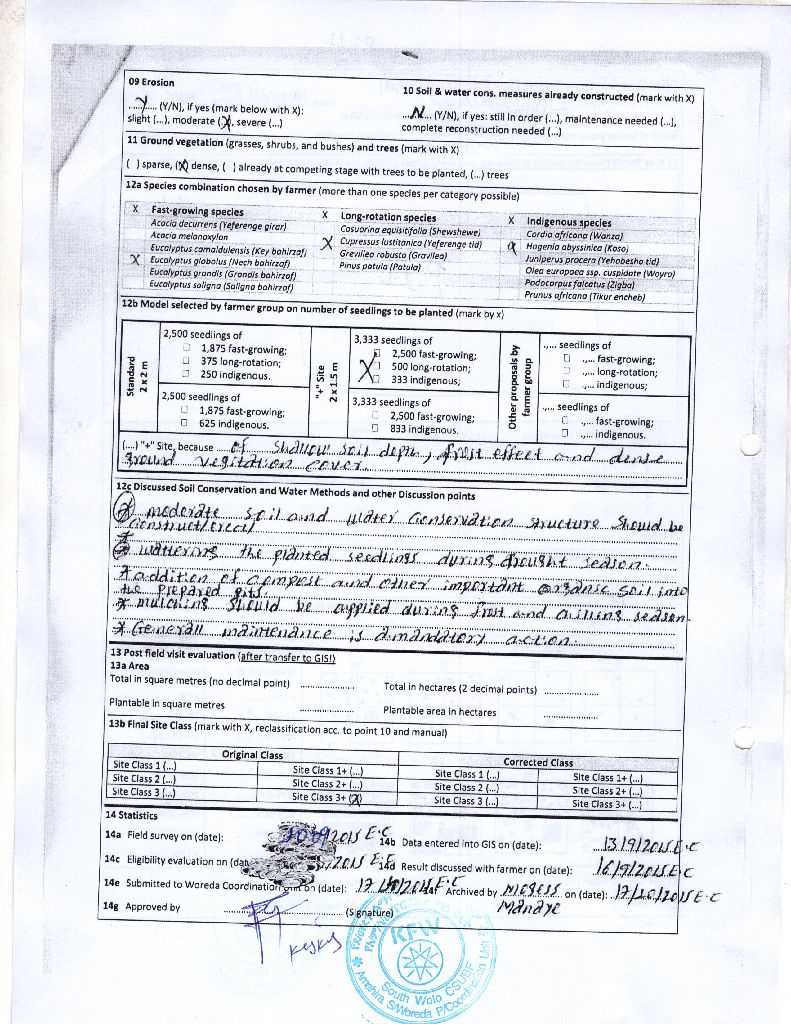 09 Erosion
10 Soil & water cons. measures already constructed (mark with X)
...Y.... (Y/N), if yes (mark below with X):
slight (...), moderate (.X), severe (...)
...N... (Y/N), if yes: still in order (...), maintenance needed (...),
complete reconstruction needed (...)
11 Ground vegetation (grasses, shrubs, and bushes) and trees (mark with X)
( ) sparse, (X) dense, ( ) already at competing stage with trees to be planted, (...) trees
12a Species combination chosen by farmer (more than one species per category possible)
X Fast-growing species
Acacia decurrens (Yeferenge girar)
Acacia melanoxylon
Eucalyptus camaldulensis (Key bahirzaf)
X Eucalyptus globolus (Nech bahirzaf)
Eucalyptus grandis (Grandis bahirzaf)
Eucalyptus saligna (Saligna bahirzaf)
X Long-rotation species
Casuarina equisitifolia (Shewshewe)
X Cupressus lustitanica (Yeferenge tid)
Grevilea robusta (Gravilea)
Pinus patula (Patula)
X Indigenous species
Cordia africana (Wanza)
Hagenia abyssinica (Koso)
Juniperus procera (Yehabesho tid)
Olea europaea ssp. cuspidate (Woyra)
Podocarpus falcatus (Zigba)
Prunus africana (Tikur encheb)
12b Model selected by farmer group on number of seedlings to be planted (mark by x)
Standard
2 x 2 m
2,500 seedlings of
1,875 fast-growing;
375 long-rotation;
250 indigenous.
2,500 seedlings of
1,875 fast-growing;
625 indigenous.
"+" Site
2 x 1.5 m
3,333 seedlings of
2,500 fast-growing;
X 500 long-rotation;
333 indigenous;
3,333 seedlings of
2,500 fast-growing;
833 indigenous.
Other proposals by
farmer group
.,... seedlings of
.,... fast-growing;
.,... long-rotation;
.,... indigenous;
.,... seedlings of
.,... fast-growing;
.,... indigenous.
(....) "+" Site, because of shallow soil depth, frost effect and dense
ground vegitation cover.
12c Discussed Soil Conservation and Water Methods and other Discussion points
* moderate soil and water conservation structure should be
construct/erect/
* wattering the planted seedlings during drought season.
* addition of compost and other important organic soil into
the prepared pits.
* mulching should be applied during frost and chilling season.
* Generall maintenance is a mandatory action.
13 Post field visit evaluation (after transfer to GIS!)
13a Area
Total in square metres (no decimal point) ....................
Total in hectares (2 decimal points) ....................
Plantable in square metres ....................
Plantable area in hectares ....................
13b Final Site Class (mark with X, reclassification acc. to point 10 and manual)
Original Class
Corrected Class
Site Class 1 (...) Site Class 1+ (...) Site Class 1 (...) Site Class 1+ (...)
Site Class 2 (...) Site Class 2+ (...) Site Class 2 (...) Site Class 2+ (...)
Site Class 3 (...) Site Class 3+ (X) Site Class 3 (...) Site Class 3+ (...)
14 Statistics
14a Field survey on (date): 2015 E.C
14b Data entered into GIS on (date): 13/9/2015 E.C
14c Eligibility evaluation on (date): 2015 E.C
14d Result discussed with farmer on (date): 16/9/2015 E.C
14e Submitted to Woreda Coordination Unit on (date): 17/10/2015 E.C
14f Archived by Mogess on (date): 17/10/2015 E.C
Manaye
14g Approved by .................... (Signature)
KFW
South Wolo CSUBF
Amehira S/Woreda P/Coordination Unit